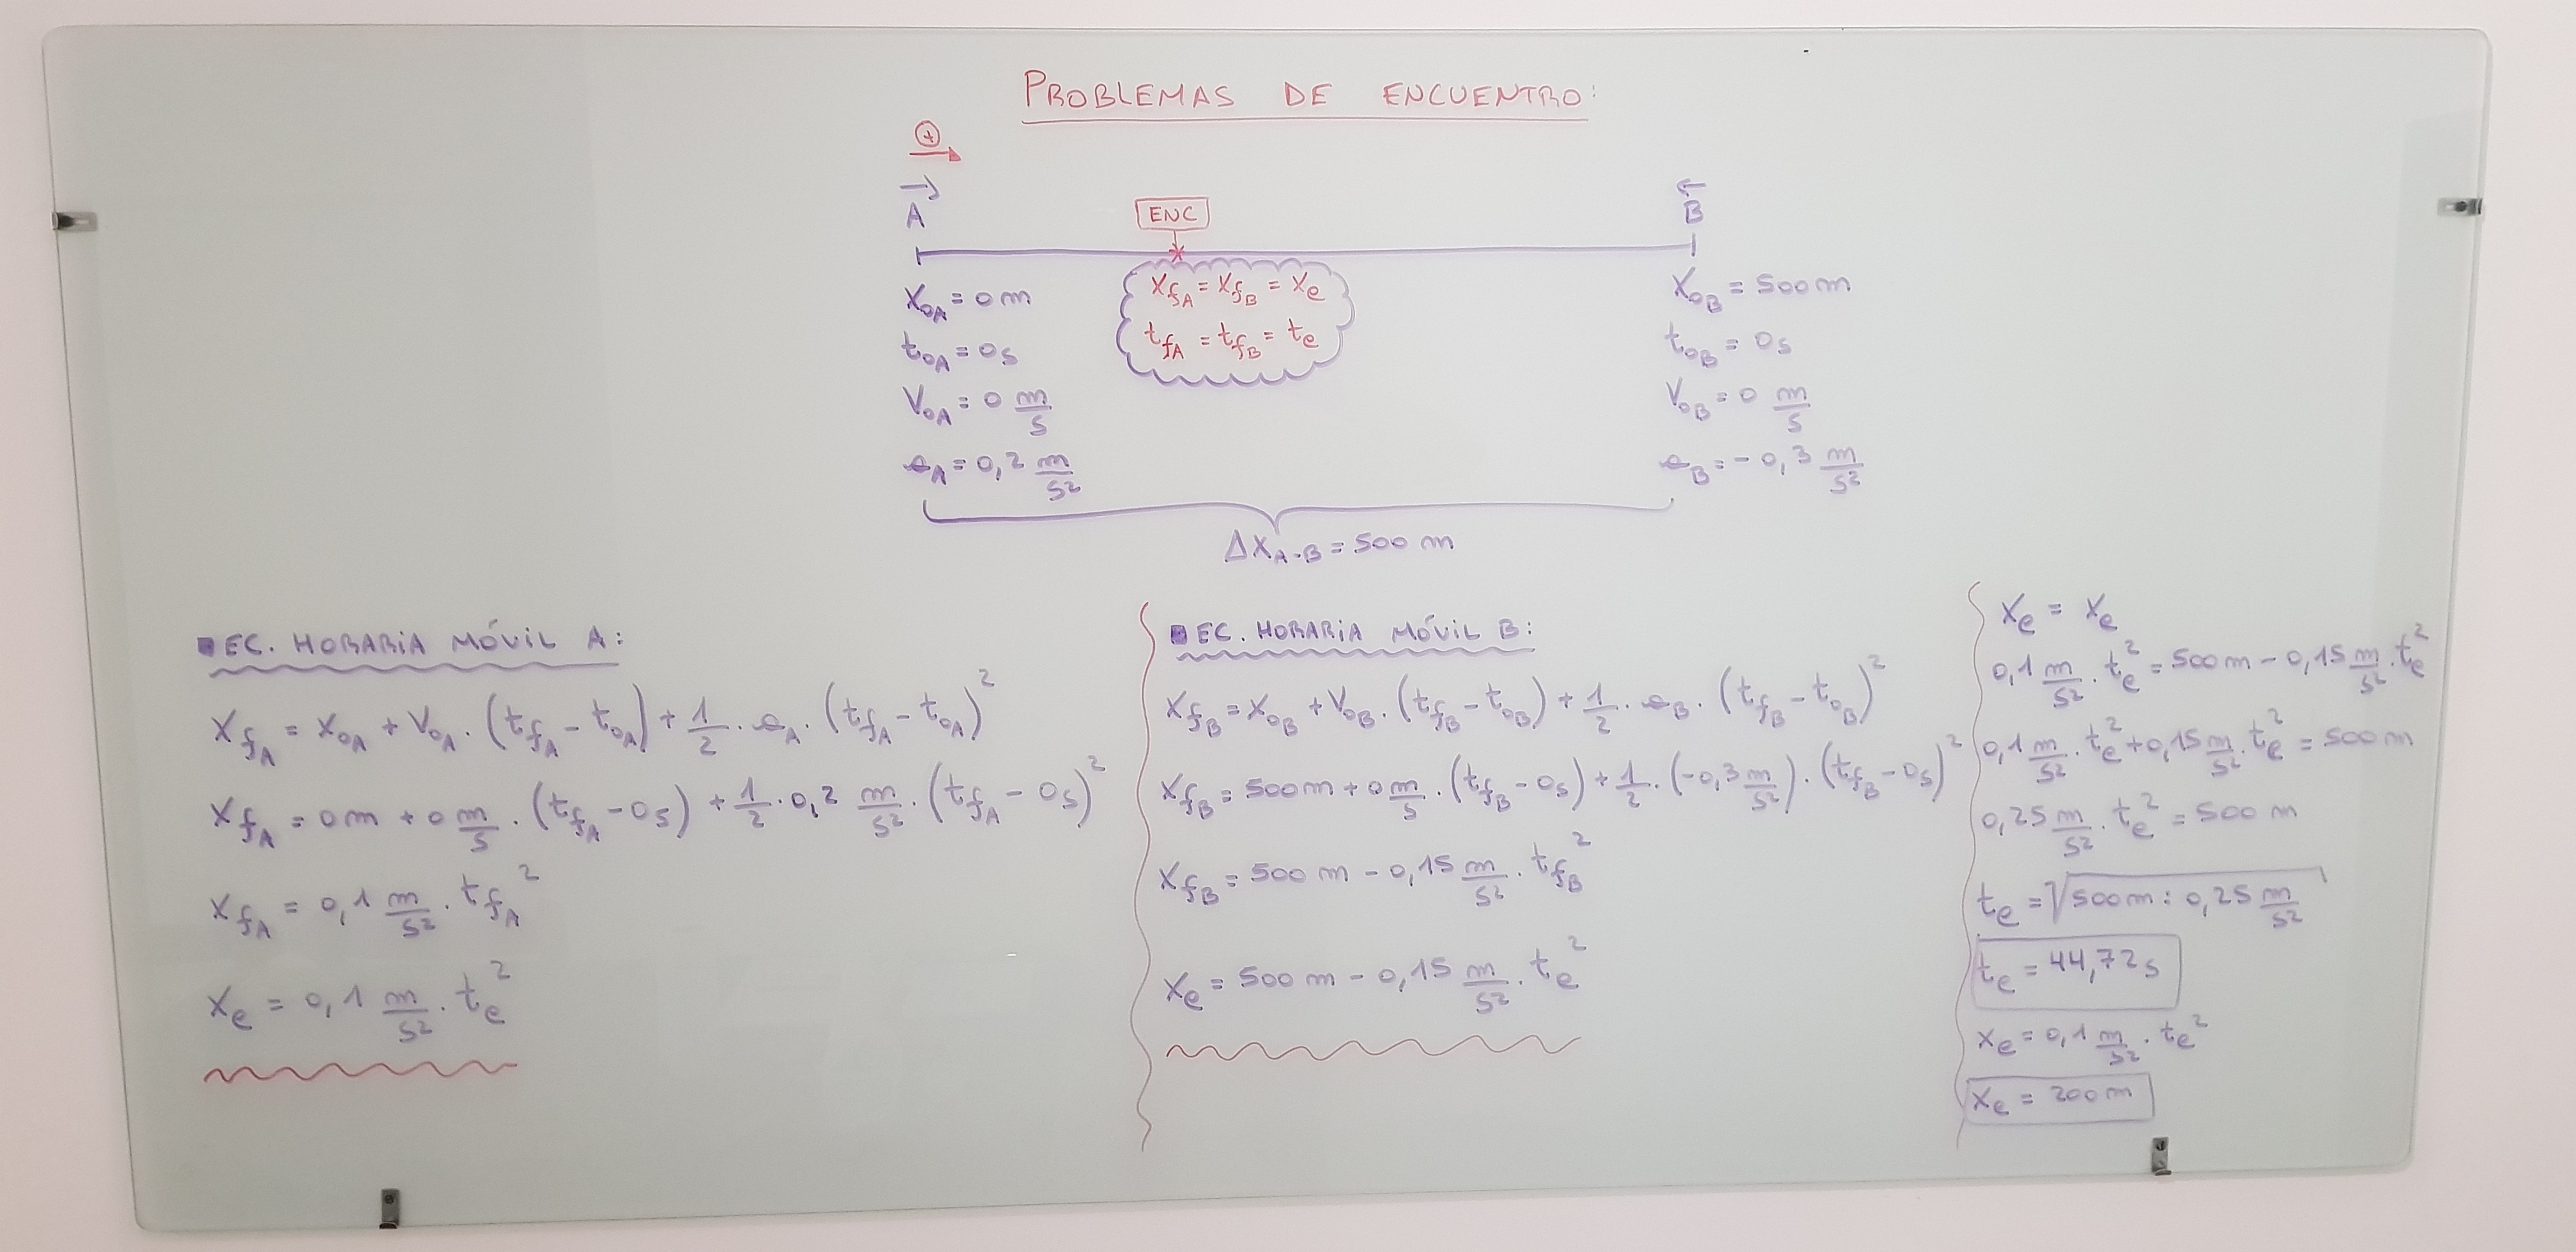 PROBLEMAS DE ENCUENTRO:
⊕ →
→ A
ENC
← B
X₀A = 0 m
t₀A = 0s
V₀A = 0 m/s
aA = 0,2 m/s²
XfA = XfB = Xe
tfA = tfB = te
X₀B = 500 m
t₀B = 0s
V₀B = 0 m/s
aB = -0,3 m/s²
ΔXA-B = 500 m
EC. HORARIA MÓVIL A:
XfA = X₀A + V₀A . (tfA - t₀A) + 1/2 . aA . (tfA - t₀A)²
XfA = 0 m + 0 m/s . (tfA - 0s) + 1/2 . 0,2 m/s² . (tfA - 0s)²
XfA = 0,1 m/s² . tfA²
Xe = 0,1 m/s² . te²
EC. HORARIA MÓVIL B:
XfB = X₀B + V₀B . (tfB - t₀B) + 1/2 . aB . (tfB - t₀B)²
XfB = 500 m + 0 m/s . (tfB - 0s) + 1/2 . (-0,3 m/s²) . (tfB - 0s)²
XfB = 500 m - 0,15 m/s² . tfB²
Xe = 500 m - 0,15 m/s² . te²
Xe = Xe
0,1 m/s² . te² = 500 m - 0,15 m/s² . te²
0,1 m/s² . te² + 0,15 m/s² . te² = 500 m
0,25 m/s² . te² = 500 m
te = √(500 m : 0,25 m/s²)
te = 44,72 s
Xe = 0,1 m/s² . te²
Xe = 200 m